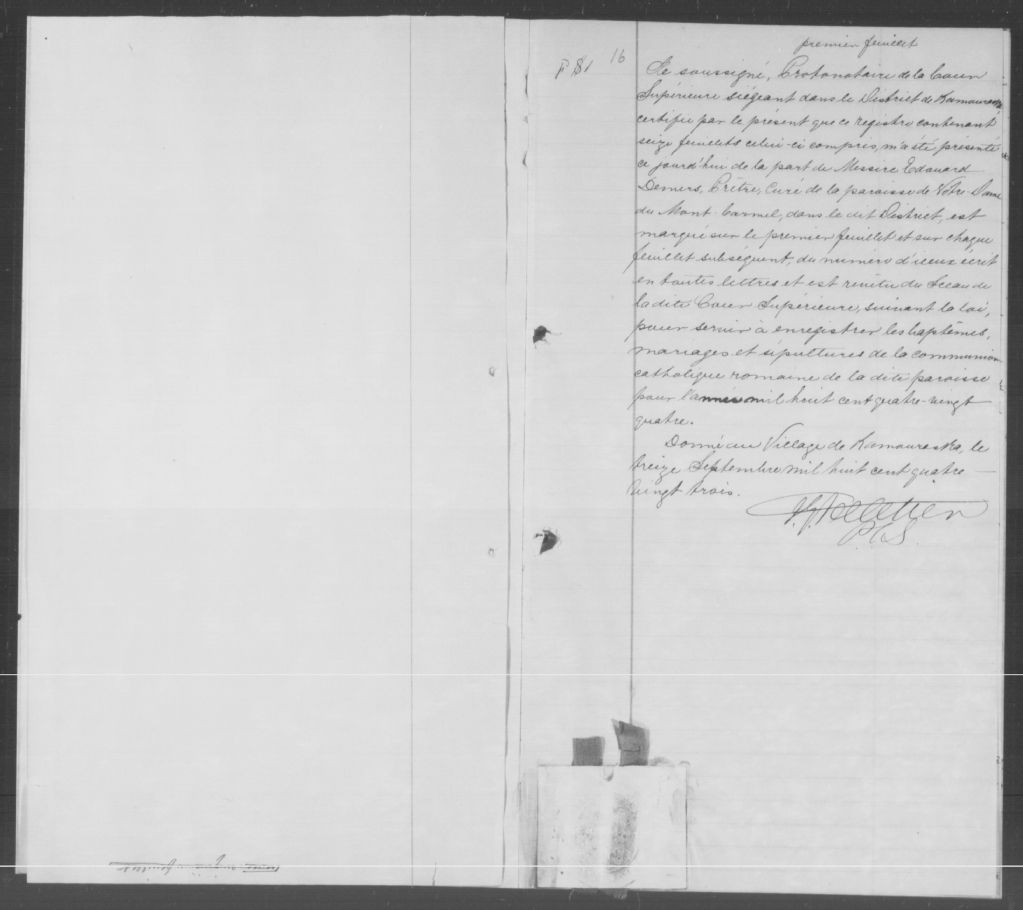 premier feuillet
16
Je soussigné, Protonotaire de la Cour
Supérieure siégeant dans le District de Kamouraska
certifie par le présent que ce registre contenant
seize feuillets celui-ci compris, m'a été présenté
ce jourd'hui de la part de Messire Edouard
Demers, Prêtre, Curé de la paroisse de Notre-Dame
du Mont-Carmel, dans le dit District, est
marqué sur le premier feuillet et sur chaque
feuillet subséquent, du numéro d'iceux écrit
en toutes lettres et est revêtu du Sceau de
la dite Cour Supérieure, suivant la loi,
pour servir à enregistrer les baptêmes,
mariages et sépultures de la communion
catholique romaine de la dite paroisse
pour l'année mil huit cent quatre-vingt
quatre.
Donné au Village de Kamouraska, le
treize Septembre mil huit cent quatre
vingt trois.
Pelletier
P.C.S.